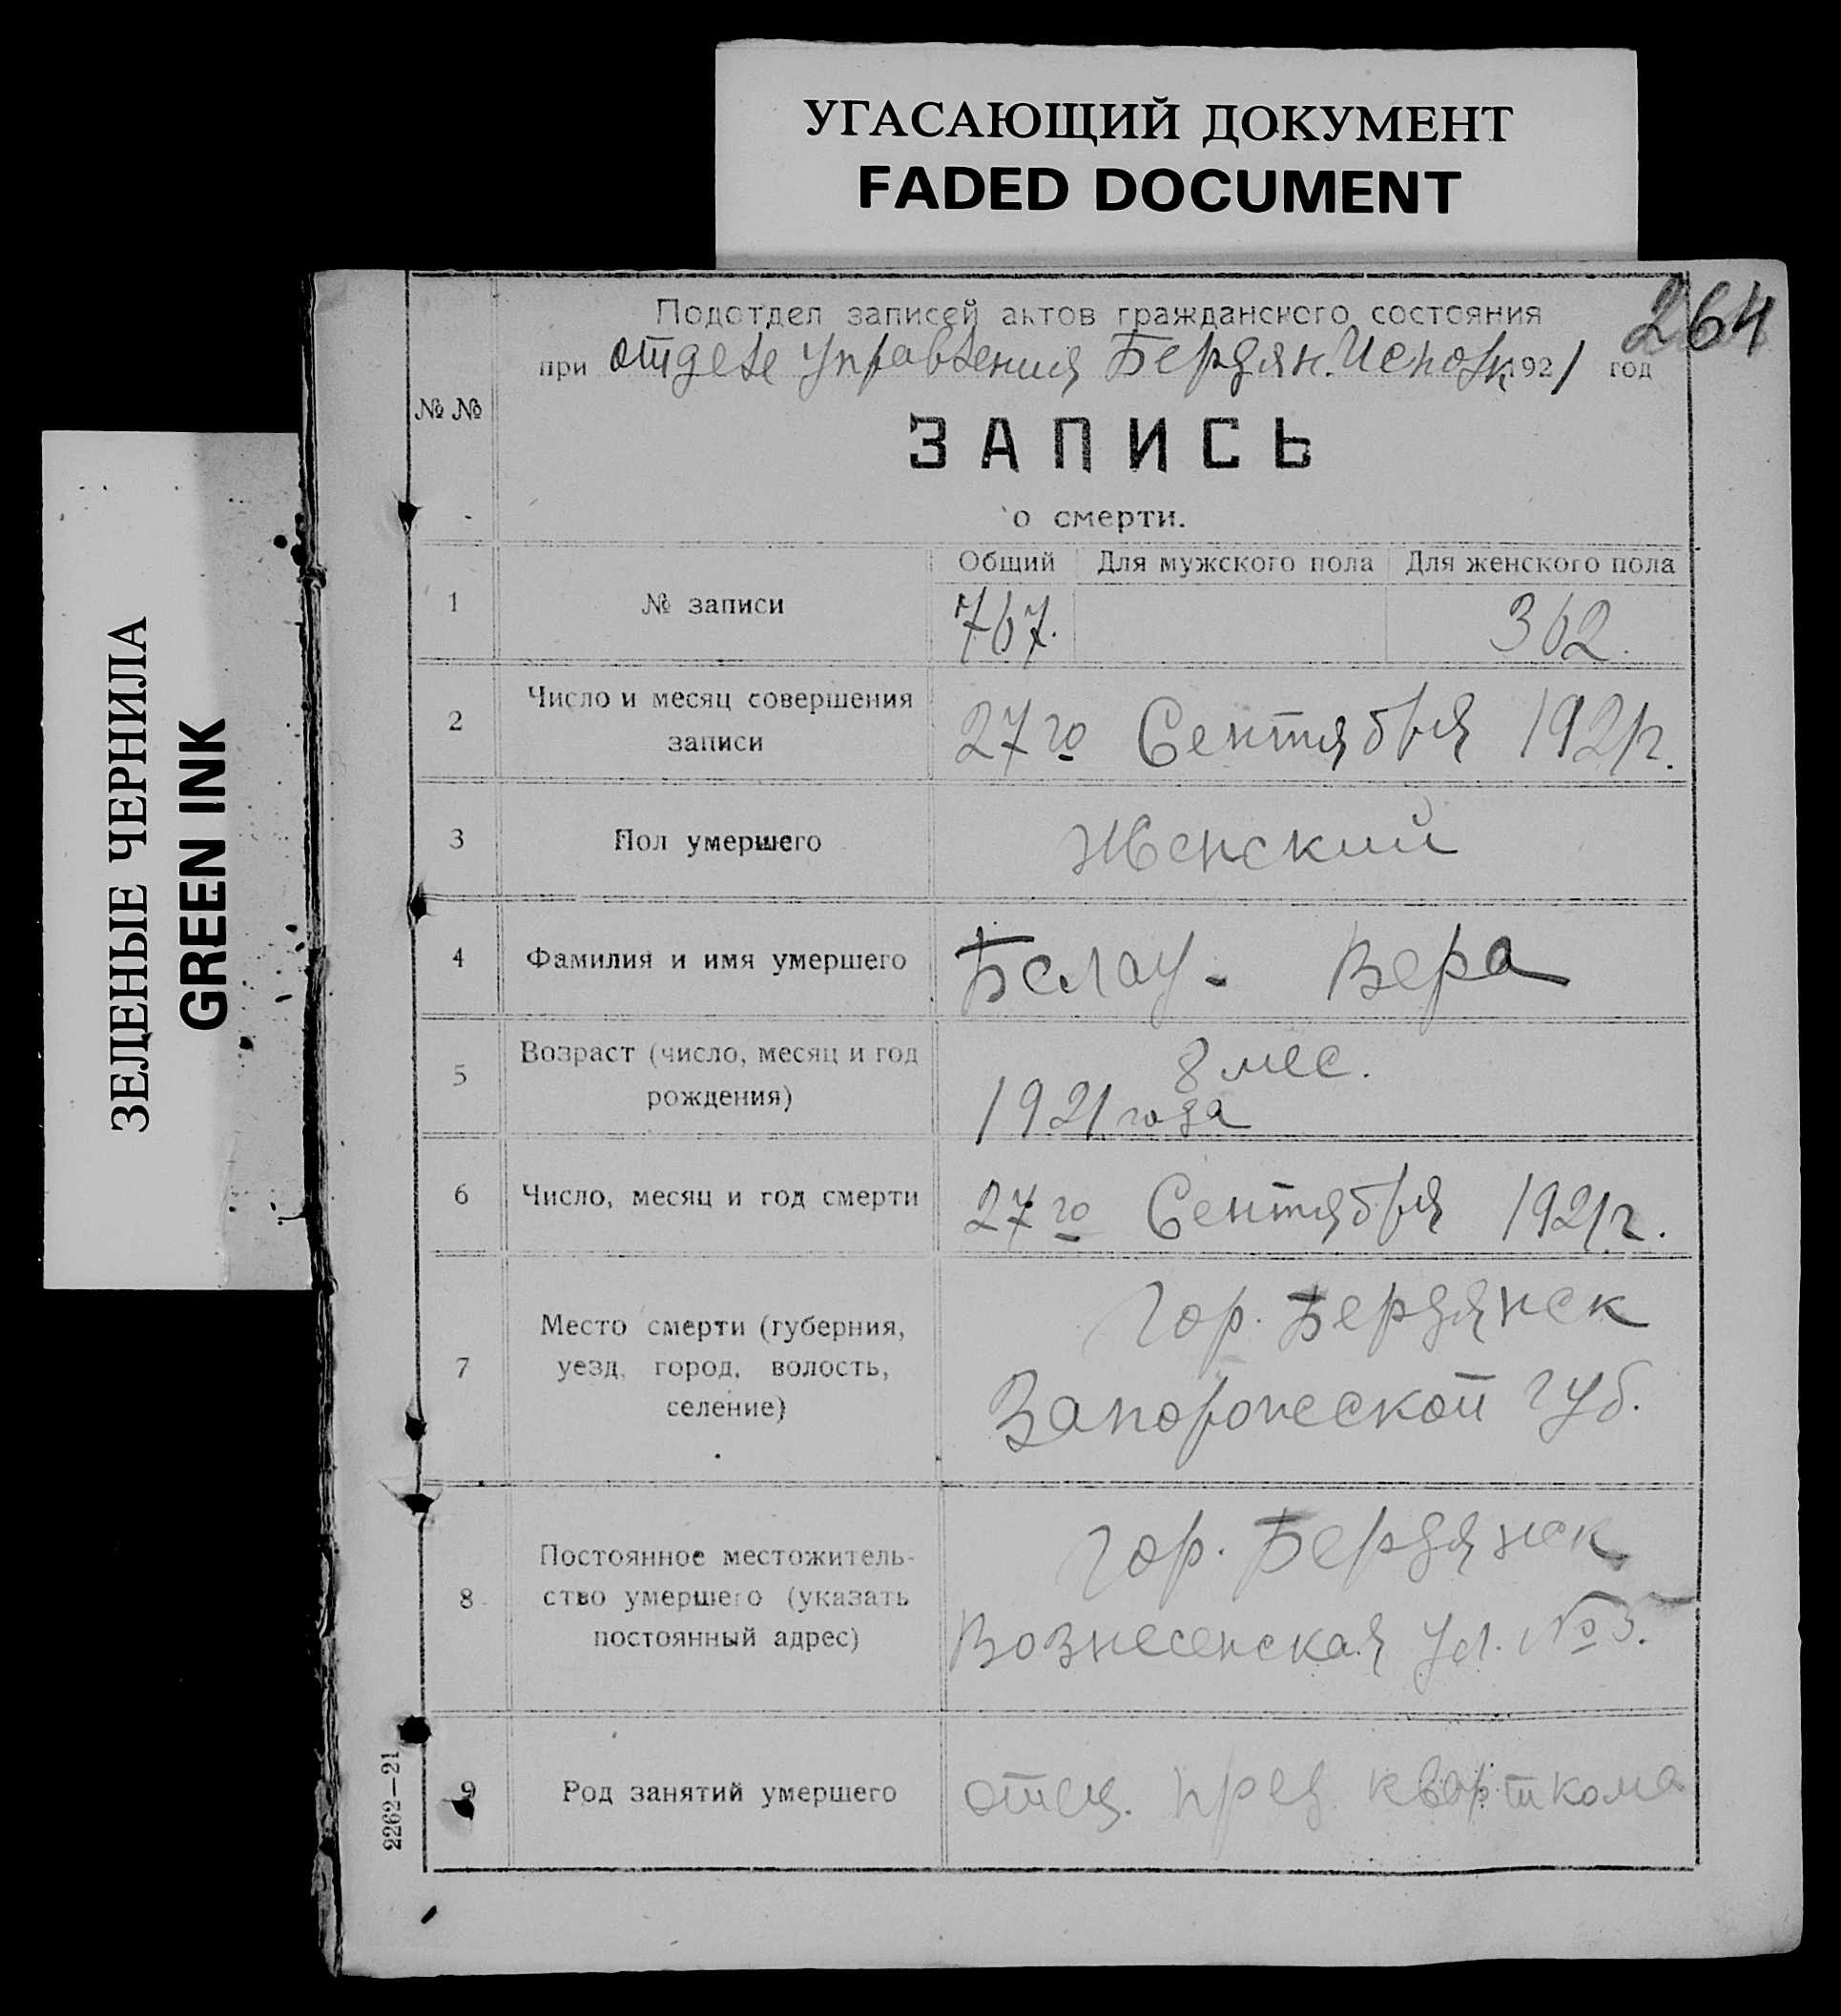 УГАСАЮЩИЙ ДОКУМЕНТ
FADED DOCUMENT
ЗЕЛЕНЫЕ ЧЕРНИЛА
GREEN INK
264
Подотдел записей актов гражданского состояния
при отделе управления Бердян. Исполк 1921 год
№ №
ЗАПИСЬ
о смерти.
Общий Для мужского пола Для женского пола
1 № записи 767. 362.
2 Число и месяц совершения
записи
27го Сентября 1921г.
3 Пол умершего Женский
4 Фамилия и имя умершего Белау - Вера
5 Возраст (число, месяц и год
рождения)
8 мес.
1921 года
6 Число, месяц и год смерти 27го Сентября 1921г.
7 Место смерти (губерния,
уезд, город, волость,
селение)
гор. Бердянск
Запорожской губ.
8 Постоянное местожитель-
ство умершего (указать
постоянный адрес)
гор. Бердянск
Вознесенская ул. № 5.
9 Род занятий умершего отец. пред. кварткома
2262—21